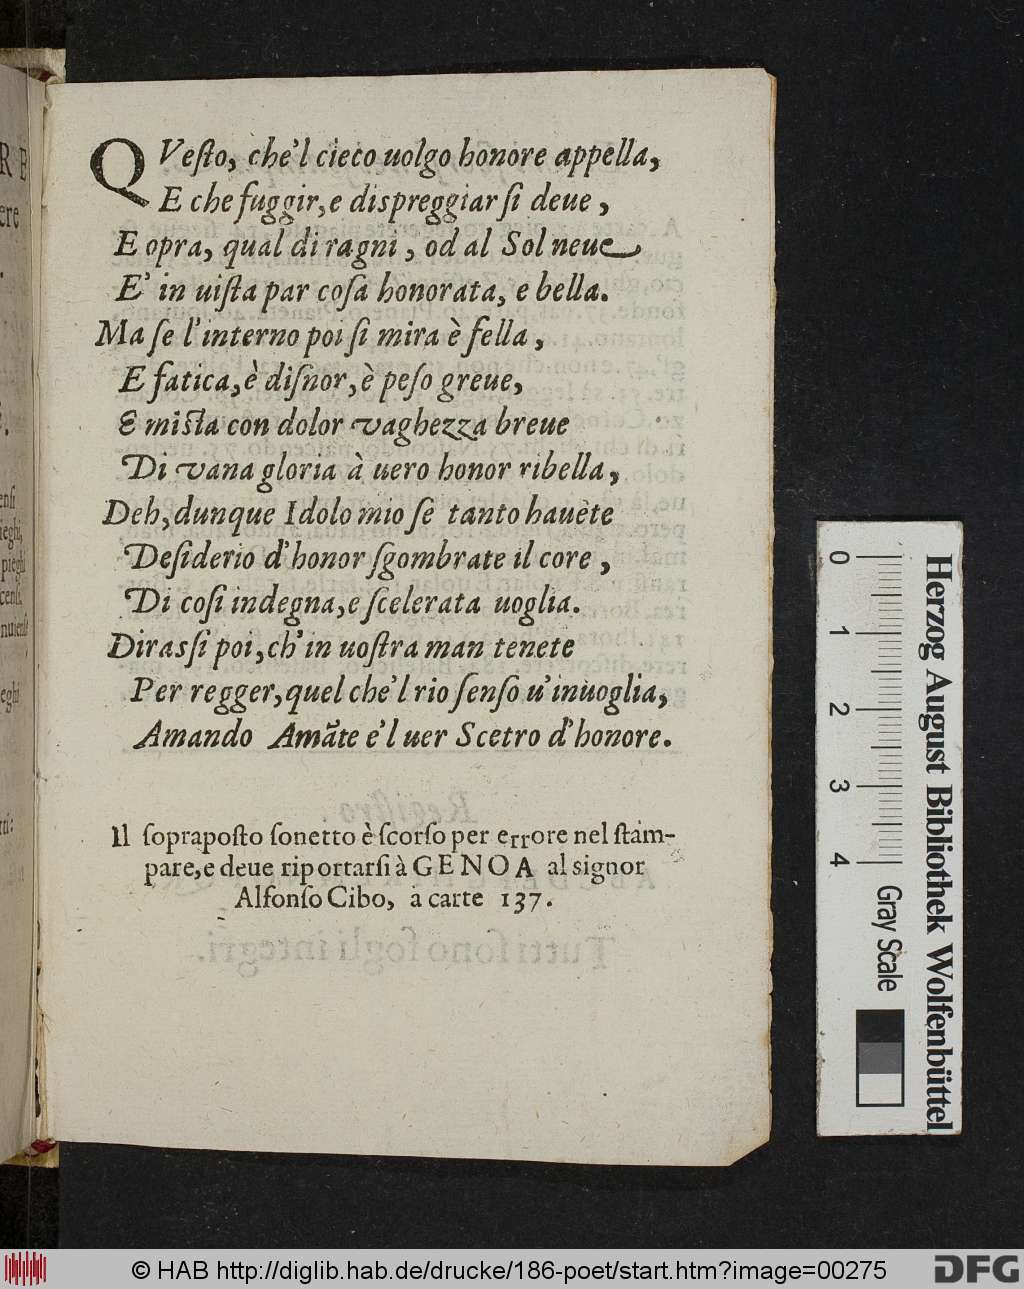 QVeſto, che'l cieco uolgo honore appella,
E che fuggir, e dispreggiar ſi deue,
E opra, qual di ragni, od al Sol neue
E' in uiſta par coſa honorata, e bella.
Ma ſe l'interno poi ſi mira è fella,
E fatica, è diſnor, è peſo greue,
E miſta con dolor vaghezza breue
Di vana gloria à uero honor ribella,
Deh, dunque Idolo mio ſe tanto hauète
Deſiderio d'honor ſgombrate il core,
Di coſi indegna, e ſcelerata uoglia.
Dirasſi poi, ch'in uoſtra man tenete
Per regger, quel che'l rio ſenſo u'inuoglia,
Amando Amãte e'l uer Scetro d'honore.
Il ſopraposto ſonetto è ſcorſo per errore nel ſtam-
pare, e deue riportarſi à GENOA al signor
Alfonſo Cibo, à carte 137.
0 1 2 3 4
Gray Scale
Herzog August Bibliothek Wolfenbüttel
© HAB http://diglib.hab.de/drucke/186-poet/start.htm?image=00275
DFG